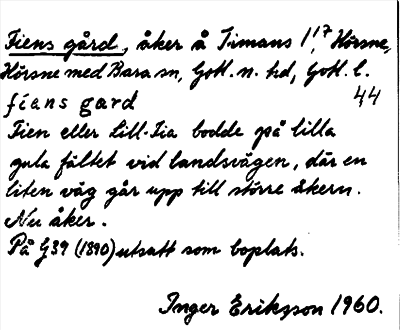 Fiens gård, åker å Timans 1:17 Hörsne,
Hörsne med Bara sn, Gotl. n. hd, Gotl. l.
fíens gard 44
Fien eller Lill-Fia bodde på lilla
gula fältet vid landsvägen, där en
liten väg går upp till större åkern.
Nu åker.
På G39 (1890) utsatt som boplats.
Inger Eriksson 1960.